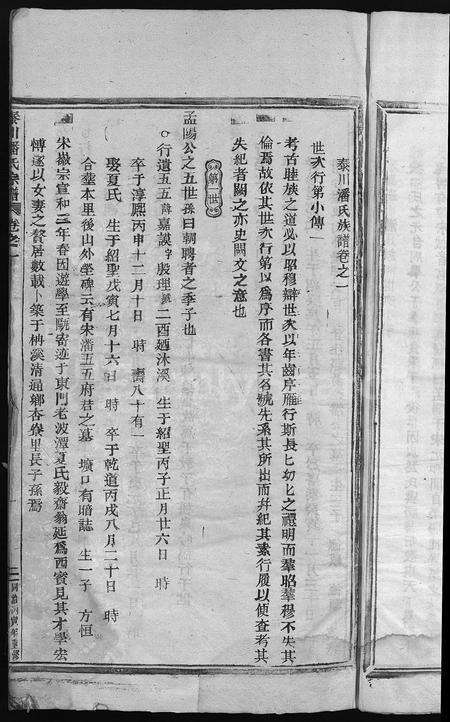 泰川潘氏族譜卷之一
世次行第小傳一
考古睦族之道必以昭穆辯世次以年齒序雁行斯長匕幼匕之禮明而羣昭羣穆不失其
倫焉故依其世次行第以爲序而各書其名號先系其所出而幷紀其素行履以便查考其
失紀者闕之亦史闕文之意也
第一世
孟陽公之五世孫曰朝聘者之季子也
行遺五五諱嘉謨字殷理號二酉廼沐溪 生于紹聖丙子正月廿六日 時
卒于淳熙丙申十二月十日 時 壽八十有一
娶夏氏 生于紹聖戊寅七月十六日 時 卒于乾道丙戌八月二十日 時
合塟本里後山外塋碑云有宋潘五五府君之墓 壙口有暗誌 生一子 方恒
宋徽宗宣和三年春因遊學至 寄迹于東門老波潭夏氏毅齋翁延爲西賓見其才學宏
愽遂以女妻之贅居數載卜築于栴溪清通鄉杏 里長子孫焉
泰川潘氏宗譜 卷之一
二
同治丙寅年重修